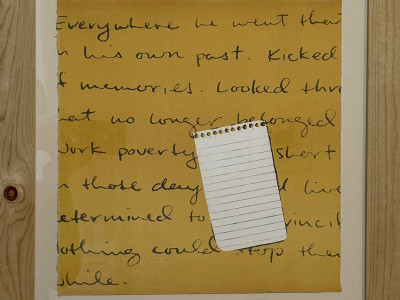 Everywhere he went ther
n his own past. Kicked
f memories. Looked thro
hat no longer belonged
Work poverty short
n those days d live
etermined to vincib
othing could stop them
while.